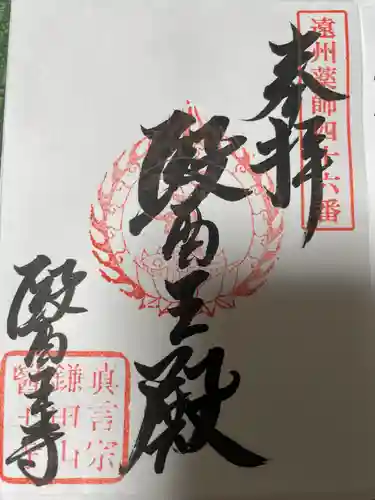 奉拝
遠州薬師四十六番
醫王殿
醫王寺
真言宗
鎌田山
醫王寺